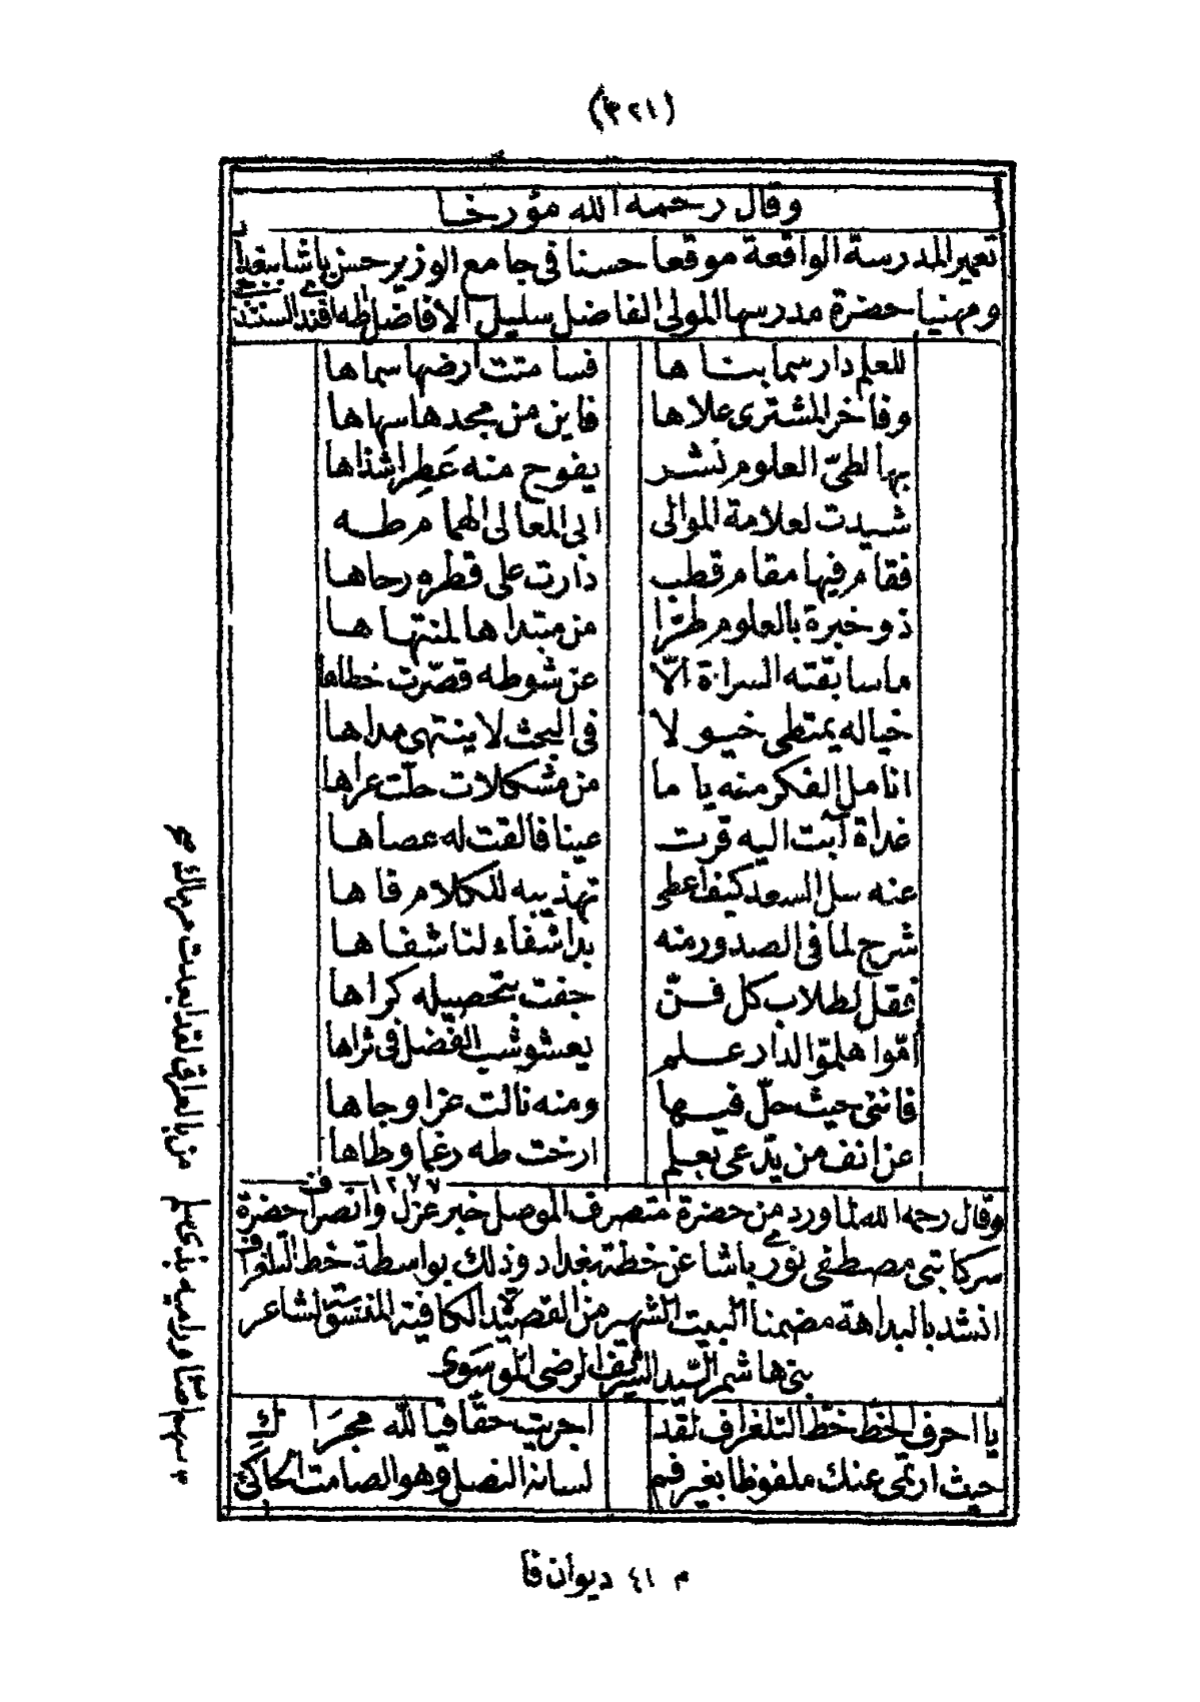 (٣٢١)
وقال رحمه الله مؤرخا
تعمير المدرسة الواقعة موقعا حسنا في جامع الوزير حسن باشا ببغداد
ومهنيا حضرة مدرسها المولى الفاضل سليل الافاضل طه افندي السنندجي
للعلم دار سما بناها فسامتت ارضها سماها
وفاخر المشترى علاها فاين من مجدها سهاها
بها لطيّ العلوم نشر يفوح منه عَطِر شذاها
شيدت لعلامة الموالى الى المعالى الهمام طه
فقام فيها مقام قطب دارت على قطره رحاها
ذو خبرة بالعلوم طرّا من مبتداها لمنتهاها
ما سابقته السراة الّا عن شوطه قصّرت خطاها
خياله يمتطى خيولا في البحث لا ينتهى مداها
انامل الفكر منه يا ما من مشكلات حلّت عراها
غداة آبت اليه قرت عينا فالقت له عصاها
عنه سل السعد كيف اعطى تهذيبه للكلام فاها
شرح لما في الصدور منه بدا شفاء لنا شفاها
فقل لطلاب كل فنّ جفت بتحصيله كراها
امّوا هلمّوا لدار علم يعشوشب الفضل في ثراها
فانني حيث حلّ فيها ومنه نالت عزا وجاها
عن انف من يدّعى بعلم ارخت طه رغما وطاها
١٢٧٧
وقال رحمه الله لما ورد من حضرة متصرف الموصل خبر عزل وانصراف حضرة
سركاتبى مصطفى نوري باشا عن خطة بغداد وذلك بواسطة خط التلغراف
انشد بالبداهة مضمنا البيت الشهير من القصيدة الكافية المنسوبة لشاعر
بنى هاشم السّيد الشريف الرضى الموسوي
يا احرف الخط خط التلغراف لقد اجريت حقا فيالله مجراك
حيث ارتمى عنك ملفوظا بغير فم لسانه النصل وهو الصامت الحاكى
سهم اصاب وراميه بذى سلم من بالعراق لقد ابعدت مرماك
م ٤١ ديوان فا